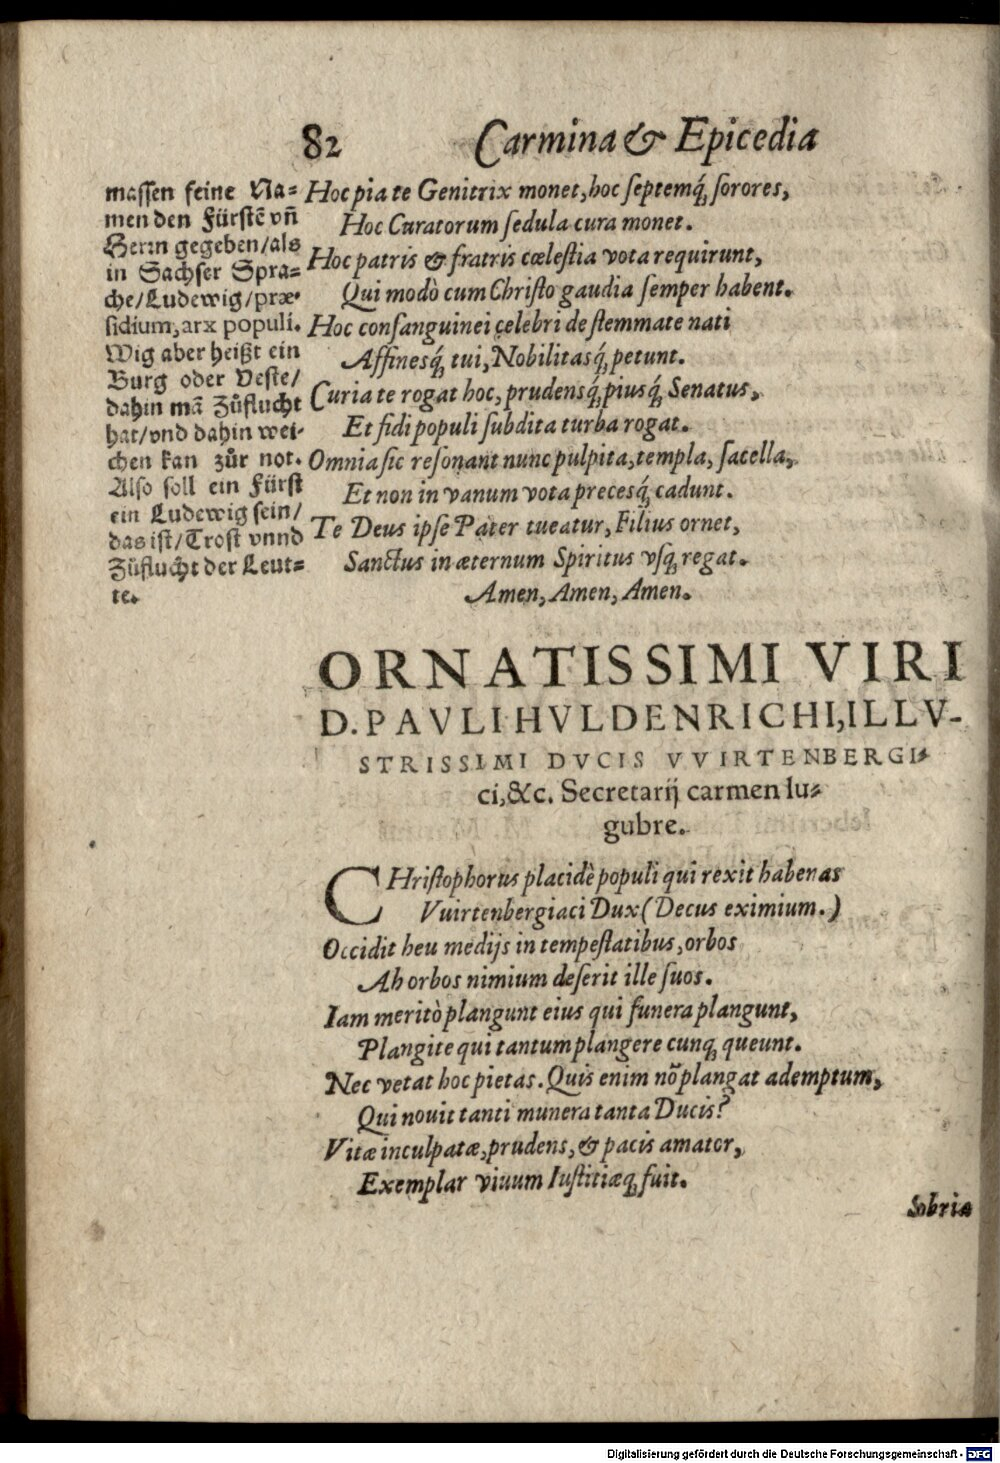 82
Carmina & Epicedia
massen feine Na=
men den Fürstē vn̄
Herrn gegeben/als
in Sachser Spra=
che/Ludewig/præ-
sidium, arx populi.
Wig aber heißt ein
Burg oder Veste/
dahin mā Zůflucht
hat/vnd dahin wei-
chen kan zůr not.
Also soll ein Fürst
ein Ludewig sein/
das ist/Trost vnnd
Zůflucht der Leut=
te.
Hoc pia te Genitrix monet, hoc septemq́; sorores,
Hoc Curatorum sedula cura monet.
Hoc patris & fratris cœlestia vota requirunt,
Qui modò cum Christo gaudia semper habent.
Hoc consanguinei celebri de stemmate nati
Affinesq́; tui, Nobilitasq́; petunt.
Curia te rogat hoc, prudensq́; piusq́; Senatus,
Et fidi populi subdita turba rogat.
Omnia sic resonant nunc pulpita, templa, sacella,
Et non in vanum vota precesq́; cadunt.
Te Deus ipse Pater tueatur, Filius ornet,
Sanctus in æternum Spiritus vsq; regat.
Amen, Amen, Amen.
ORNATISSIMI VIRI
D. PAVLI HVLDENRICHI, ILLV-
STRISSIMI DVCIS VVIRTENBERGI-
ci, &c. Secretarij carmen lu-
gubre.
CHristophorus placidè populi qui rexit habenas
Vuirtenbergiaci Dux (Decus eximium.)
Occidit heu medijs in tempestatibus, orbos
Ah orbos nimium deserit ille suos.
Iam meritò plangunt eius qui funera plangunt,
Plangite qui tantum plangere cunq; queunt.
Nec vetat hoc pietas. Quis enim nō plangat ademptum,
Qui nouit tanti munera tanta Ducis?
Vitæ inculpatæ, prudens, & pacis amator,
Exemplar viuum Iustitiæq; fuit.
Sobria
Digitalisierung gefördert durch die Deutsche Forschungsgemeinschaft - DFG